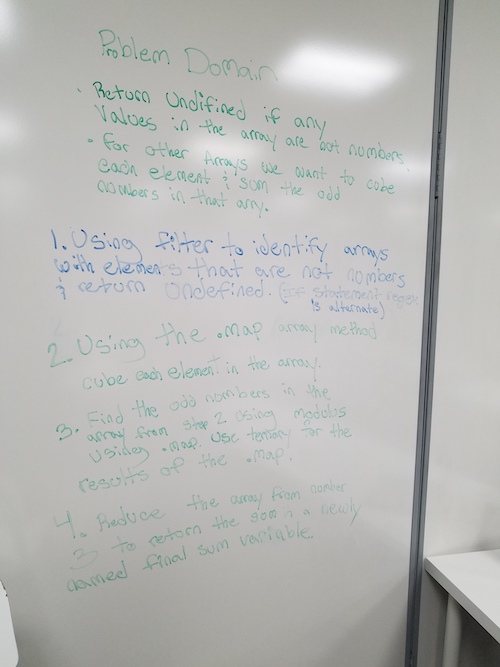 Problem Domain
• Return Undifined if any
Values in the array are not numbers.
• For other Arrays we want to cube
each element & sum the odd
numbers in that arry.
1. Using filter to identify arrays
with elements that are not numbers
& return undefined. (IF Statement regex
is alternate)
2. Using the .Map array method
cube each element in the array.
3. Find the odd numbers in the
array from step 2 using modulus
using .map. Use ternary for the
results of the .map.
4. Reduce the array from
3 to return the sum in a newly
named final sum variable.